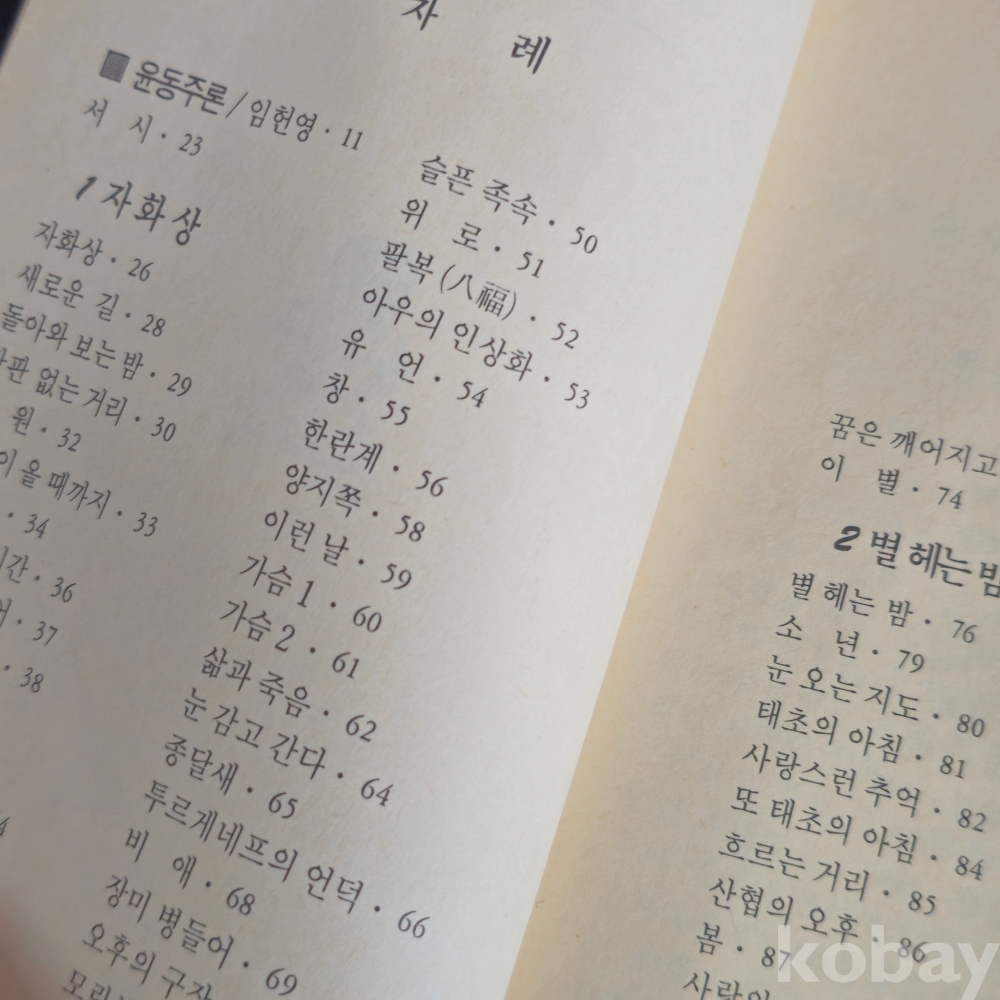 자 례
윤동주론 / 임헌영 · 11
서 시 · 23
1 자화상
자화상 · 26
새로운 길 · 28
돌아와 보는 밤 · 29
없는 거리 · 30
원 · 32
올 때까지 · 33
· 34
· 36
· 37
· 38
슬픈 족속 · 50
위 로 · 51
팔복 (八福) · 52
아우의 인상화 · 53
유 언 · 54
창 · 55
한란계 · 56
양지쪽 · 58
이런 날 · 59
가슴 1 · 60
가슴 2 · 61
삶과 죽음 · 62
눈 감고 간다 · 64
종달새 · 65
투르게네프의 언덕 · 66
비 애 · 68
장미 병들어 · 69
오후의
꿈은 깨어지고
이 별 · 74
2 별 헤는 밤
별 헤는 밤 · 76
소 년 · 79
눈 오는 지도 · 80
태초의 아침 · 81
사랑스런 추억 · 82
또 태초의 아침 · 84
흐르는 거리 · 85
산협의 오후 · 86
봄 · 87
kobay